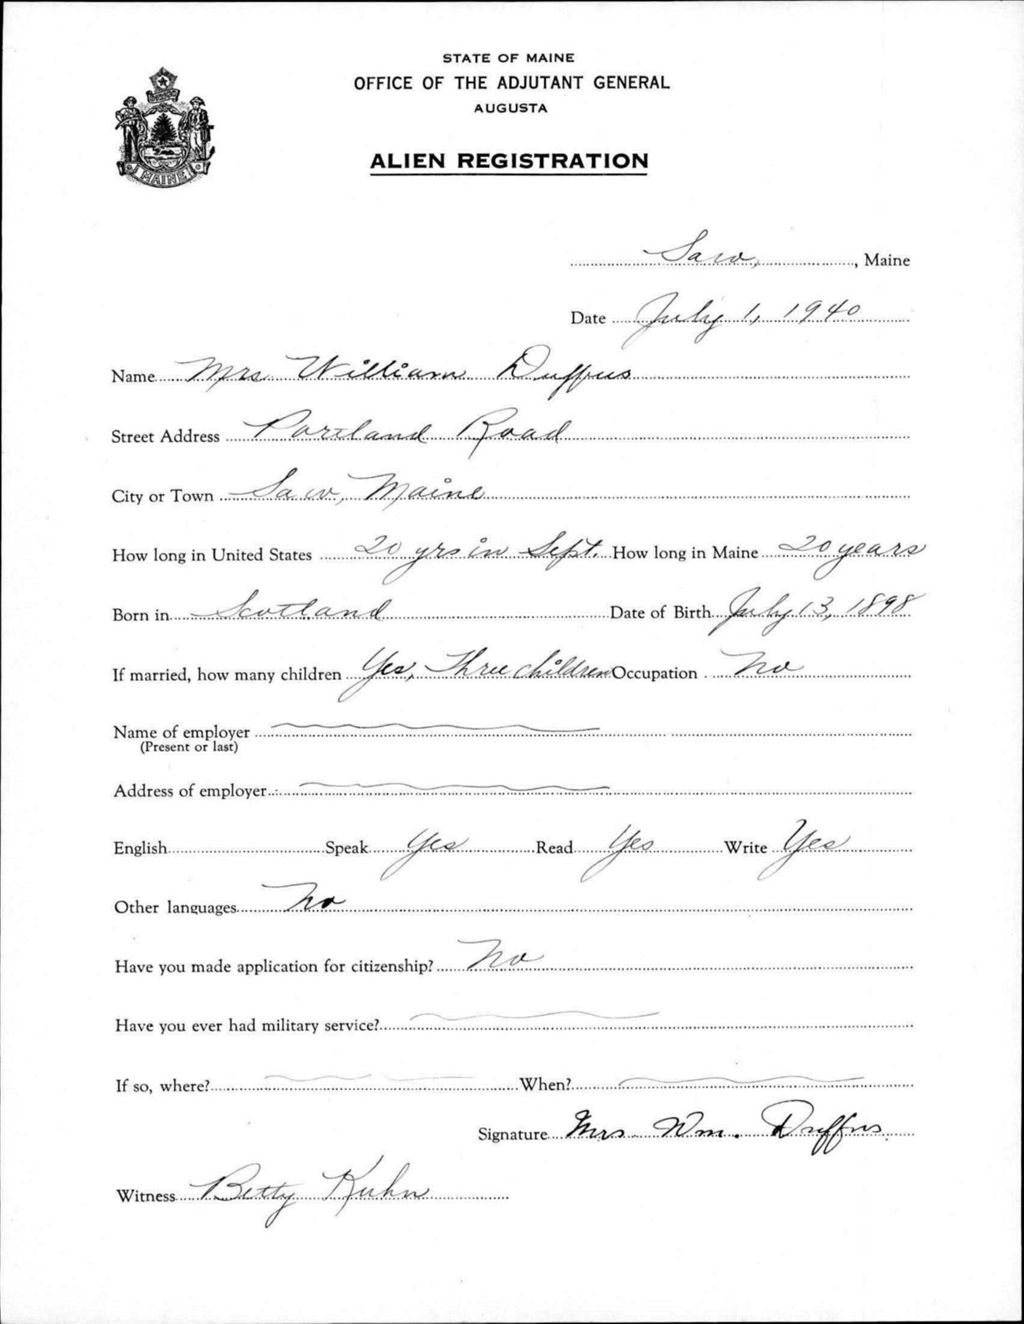 STATE OF MAINE
OFFICE OF THE ADJUTANT GENERAL
AUGUSTA
ALIEN REGISTRATION
MAINE
Saco, , Maine
Date July 1, 1940
Name Mrs William Duffus
Street Address Portland Road
City or Town Saco, Maine
How long in United States 20 yrs in Sept. How long in Maine 20 years
Born in Scotland Date of Birth July 13, 1898
If married, how many children Yes, Three children Occupation No
Name of employer
(Present or last)
Address of employer
English Speak Yes Read Yes Write Yes
Other languages No
Have you made application for citizenship? No
Have you ever had military service?
If so, where? When?
Signature Mrs Wm. Duffus
Witness Betty Kuhn